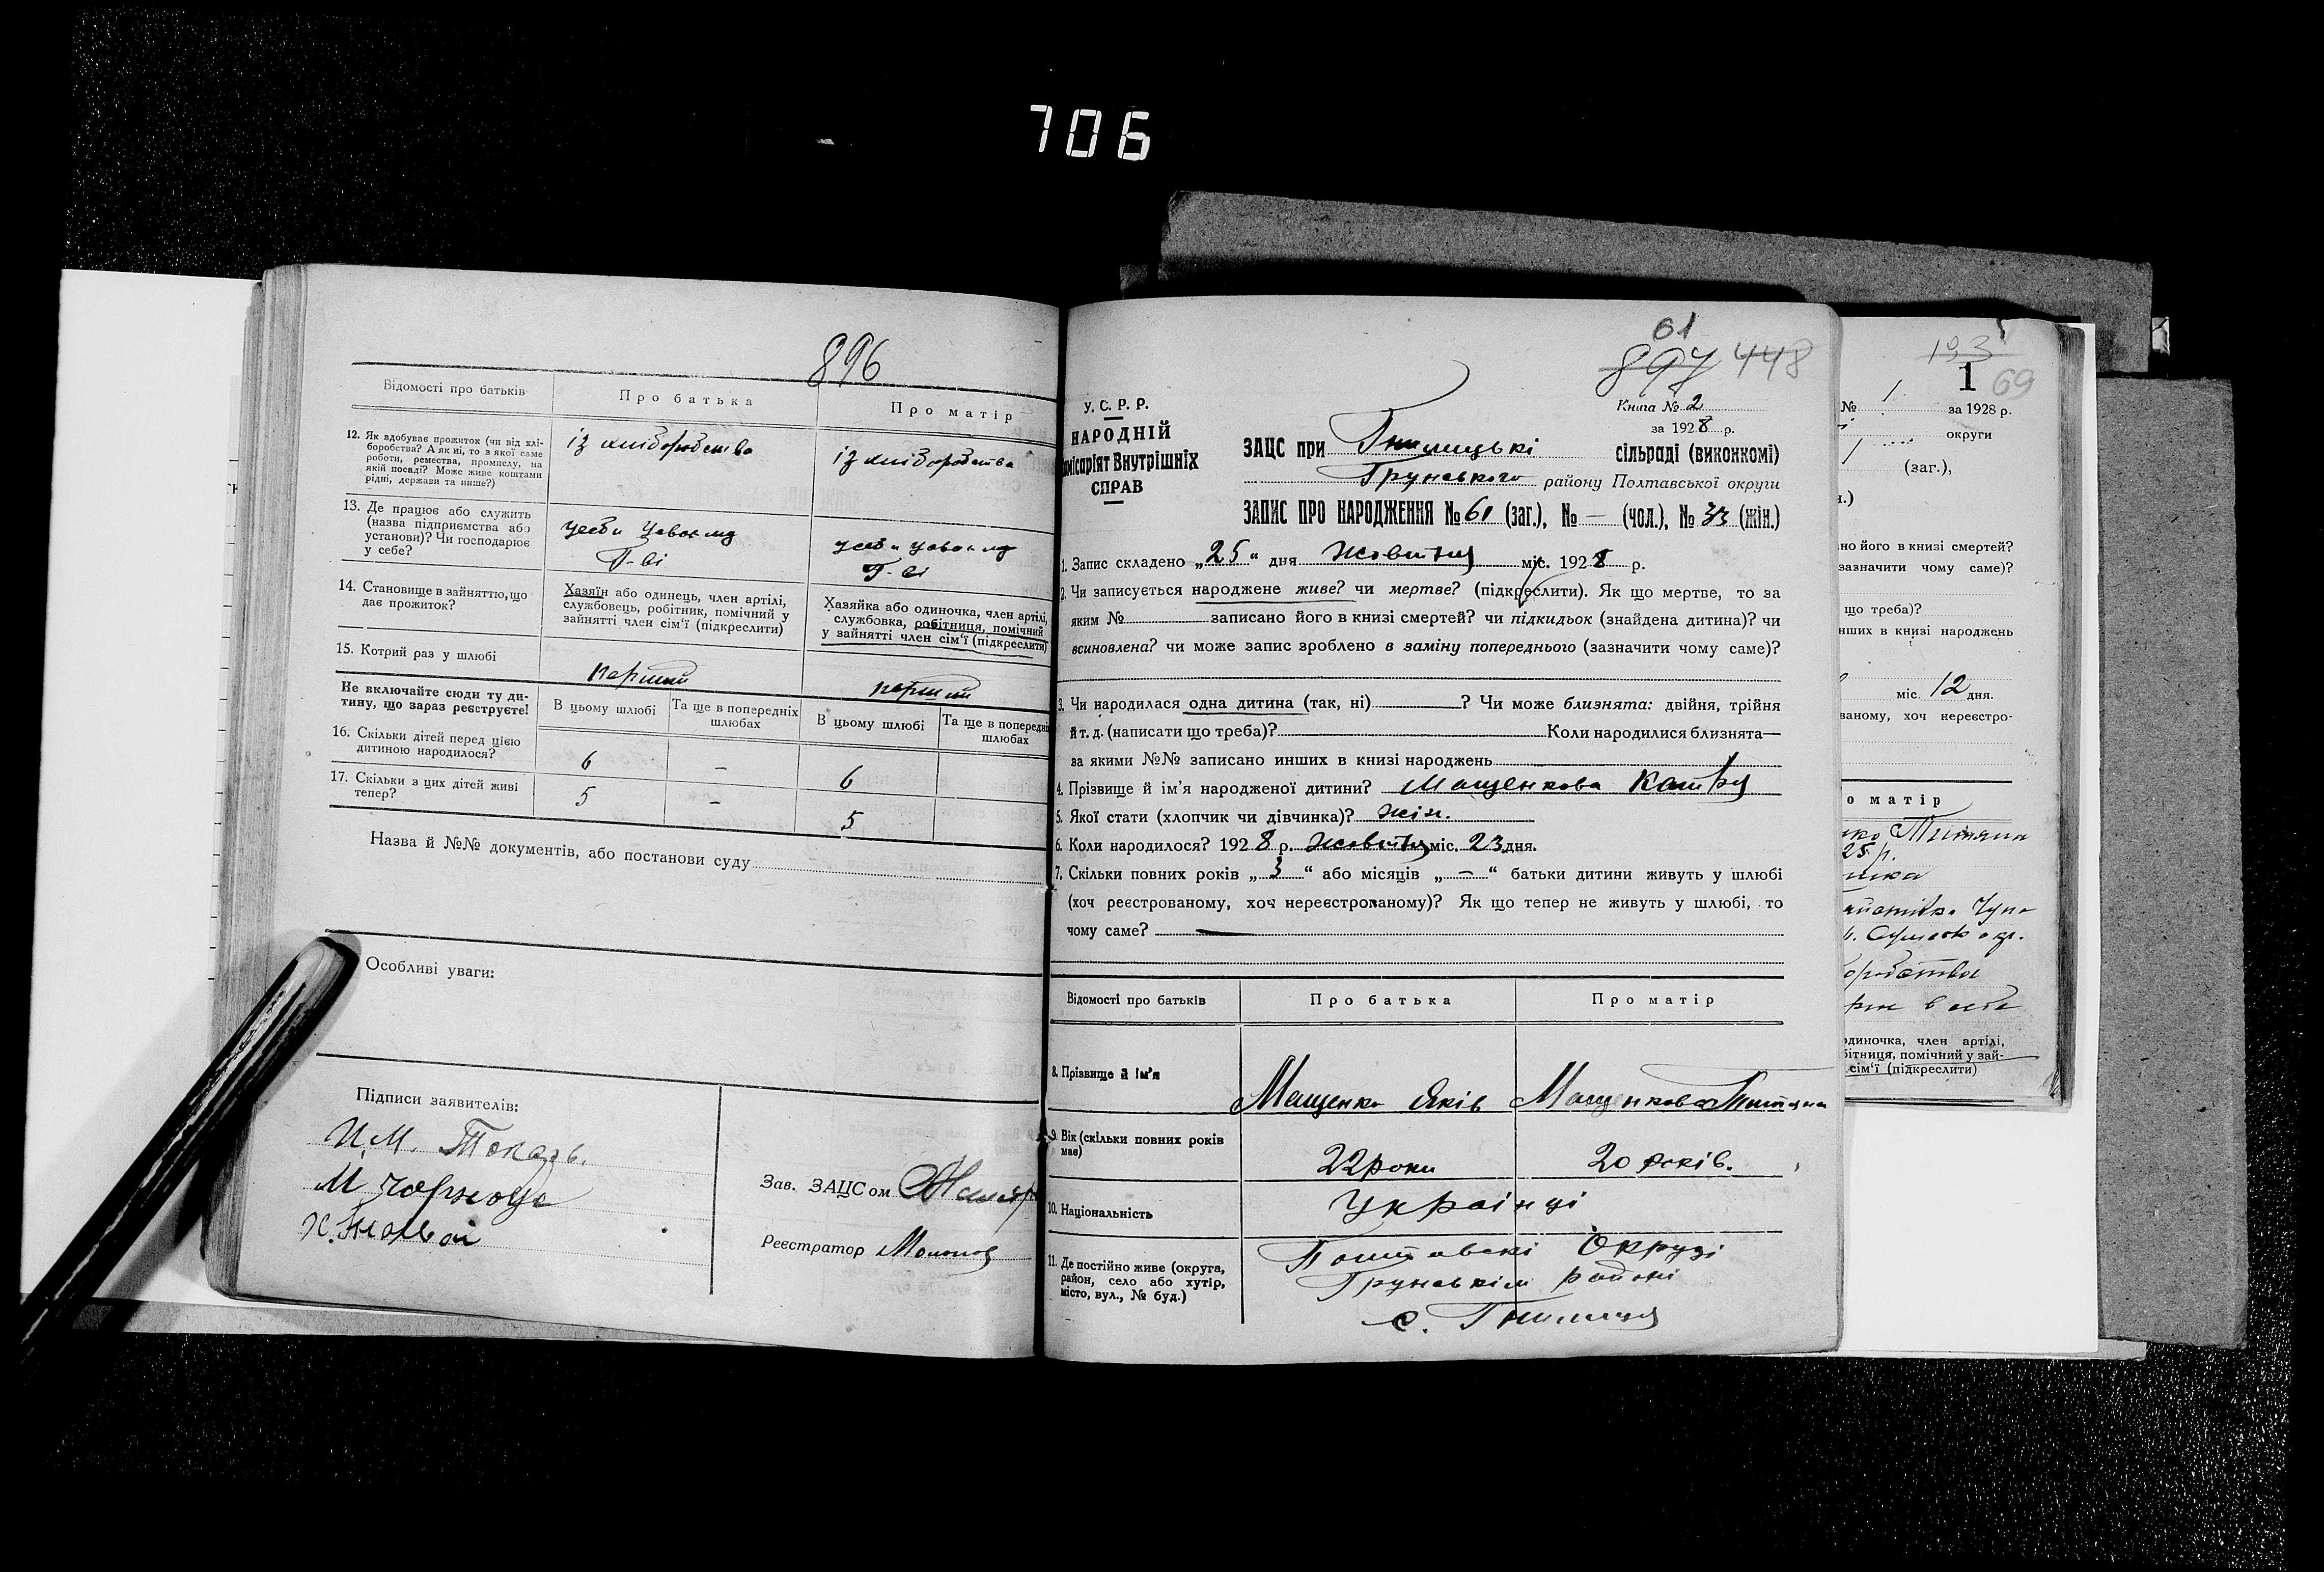 706
896
Відомості про батьків
Про батька
Про матір
12. Як здобуває прожиток (чи від хлі-
боробства? А як ні, то з якої саме
роботи, ремества, промислу, на
якій посаді? Може живе коштами
рідні, держави та инше?)
із хліборобства
із хліборобства
13. Де працює або служить
(назва підприємства або
установи)? Чи господарює
у себе?
14. Становище в зайняттю, що
дає прожиток?
Хазяїн або одинець, член артілі,
службовець, робітник, помічний у
зайнятті член сім'ї (підкреслити)
Хазяйка або одиночка, член артілі,
службовка, робітниця, помічний
у зайнятті член сім'ї (підкреслити)
15. Котрий раз у шлюбі
перший
перший
Не включайте сюди ту ди-
тину, що зараз реєструєте!
В цьому шлюбі
Та ще в попередніх
шлюбах
В цьому шлюбі
Та ще в попередні
шлюбах
16. Скільки дітей перед цією
дитиною народилося?
6 – 6
17. Скільки з цих дітей живі
тепер?
5 – 5
Назва й №№ документів, або постанови суду
Особливі уваги:
Підписи заявителів:
И.М. Токарь.
Зав. ЗАЦСом
Реєстратор
61
897 448
У. С. Р. Р.
НАРОДНІЙ
місаріят Внутрішніх
СПРАВ
Книга № 2
за 1928 р.
ЗАЦС при Гнилицькі сільраді (виконкомі)
Грунського району Полтавської округи
ЗАПИС ПРО НАРОДЖЕННЯ № 61 (заг.), № — (чол.), № 33 (жін.)
1. Запис складено „25" дня Жовтня міс. 1928 р.
2. Чи записується народжене живе? чи мертве? (підкреслити). Як що мертве, то за
яким № записано його в книзі смертей? чи підкидьок (знайдена дитина)? чи
всиновлена? чи може запис зроблено в заміну попереднього (зазначити чому саме)?
3. Чи народилася одна дитина (так, ні) ? Чи може близнята: двійня, трійня
й т. д. (написати що треба)? Коли народилися близнята—
за якими №№ записано инших в книзі народжень
4. Прізвище й ім'я народженої дитини? Мащенкова Катря
5. Якої стати (хлопчик чи дівчинка)? жін.
6. Коли народилося? 1928 р. Жовтня міс. 23 дня.
7. Скільки повних років „3" або місяців „–" батьки дитини живуть у шлюбі
(хоч реєстрованому, хоч нереєстрованому)? Як що тепер не живуть у шлюбі, то
чому саме? —
Відомості про батьків
Про батька
Про матір
8. Прізвище й ім'я
Мащенко Яків
Мащенкова Титяна
9. Вік (скільки повних років
має)
22 роки
20 років.
10. Національність
Українці
11. Де постійно живе (округа,
район, село або хутір,
місто, вул., № буд.)
Полтавскі Окрузі
Грунськім районі
с. Гнилиця
193
1 69
№ 1. за 1928 р.
округи
(заг.),
но його в книзі смертей?
зазначити чому саме)?
що треба)?
нших в книзі народжень
міс. 12 дня.
ваному, хоч нереєстро-
о матір
Титяна
25 р.
диночка, член артілі,
бітниця, помічний у зай-
сім'ї (підкреслити)